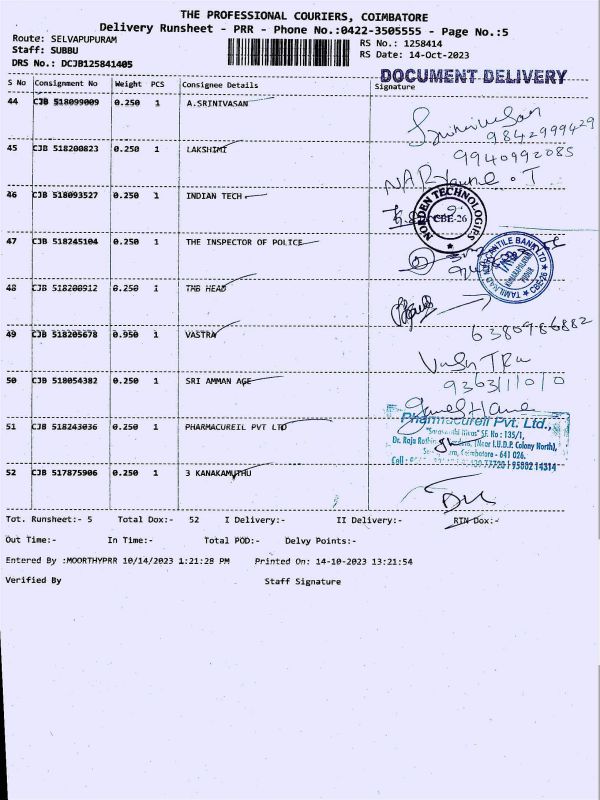 THE PROFESSIONAL COURIERS, COIMBATORE
Delivery Runsheet - PRR - Phone No.:0422-3505555 - Page No.:5
Route: SELVAPUPURAM
RS No.: 1258414
Staff: SUBBU
RS Date: 14-Oct-2023
DRS No.: DCJB125841405
DOCUMENT DELIVERY
S No Consignment No Weight PCS Consignee Details Signature
44 CJB 518099009 0.250 1 A.SRINIVASAN
Srinivasan
9842999429
45 CJB 518200823 0.250 1 LAKSHIMI
9940992085
46 CJB 518093527 0.250 1 INDIAN TECH
NORDEN TECHNOLOGIES
CBE-26
47 CJB 518245104 0.250 1 THE INSPECTOR OF POLICE
TAMILNAD MERCANTILE BANK LTD
CBE-26
48 CJB 518200912 0.250 1 TMB HEAD
6380986882
49 CJB 518205678 0.950 1 VASTRA
50 CJB 518054382 0.250 1 SRI AMMAN AGE
51 CJB 518243036 0.250 1 PHARMACUREIL PVT LTD
Pharmacureil Pvt. Ltd.,
S.F. No : 135/1,
(Near I.U.D.P. Colony North),
Coimbatore - 641 026.
95002 14314
52 CJB 517875906 0.250 1 3 KANAKAMUTHU
Tot. Runsheet:- 5 Total Dox:- 52 I Delivery:- II Delivery:- RTN Dox:-
Out Time:- In Time:- Total POD:- Delvy Points:-
Entered By :MOORTHYPRR 10/14/2023 1:21:28 PM Printed On: 14-10-2023 13:21:54
Verified By Staff Signature